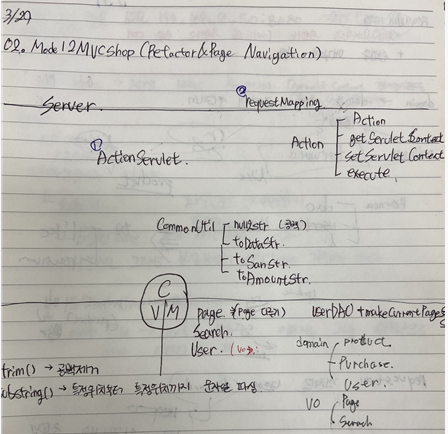 3/29
02. Model2MVCShop (Refactor&Page Navigation)
Server.
② requestMapping
① ActionServlet.
Action
Action
getServletContext
setServletContext
execute.
CommonUtil
null2str (공백)
toDateStr.
toSsnStr.
toAmountStr.
C
V M
page
Search.
User.
userDAO + makeCurrentPageS
domain
product
Purchase.
User.
VO
Page
Serach
trim() → 공백제거
ubstring() → 특정위치부터 특정위치까지 문자열 파싱